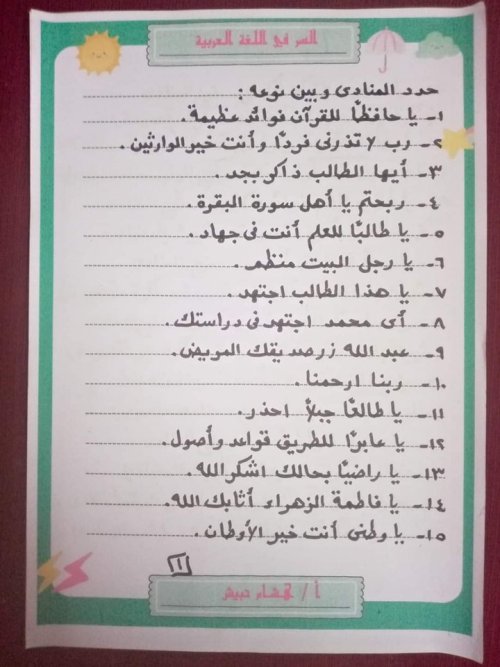 السر في اللغة العربية
حدد المنادى وبين نوعه :
١- يا حافظًا للقرآن فوائد عظيمة.
٢- رب لا تذرنى فردًا وأنت خير الوارثين.
٣- أيها الطالب ذاكر بجد.
٤- ربحتم يا أهل سورة البقرة.
٥- يا طالبًا للعلم أنت فى جهاد.
٦- يا رجل البيت منظم.
٧- يا هذا الطالب اجتهد.
٨- أى محمد اجتهد فى دراستك.
٩- عبد الله زر صديقك المريض.
١٠- ربنا ارحمنا.
١١- يا طالعًا جبلًا احذر.
١٢- يا عابرًا للطريق قواعد وأصول.
١٣- يا راضيًا بحالك اشكر الله.
١٤- يا فاطمة الزهراء أثابك الله.
١٥- يا وطنى أنت خير الأوطان.
١
أ / هشام